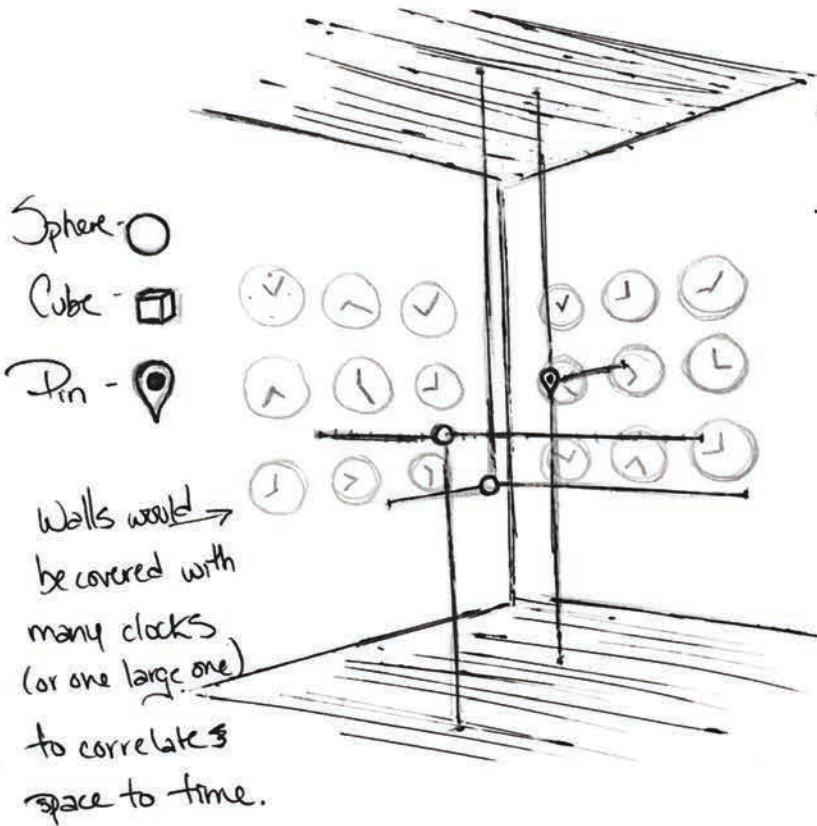 Sphere-
Cube -
Pin -
Walls would
be covered with
many clocks
(or one large one)
to correlate
space to time.